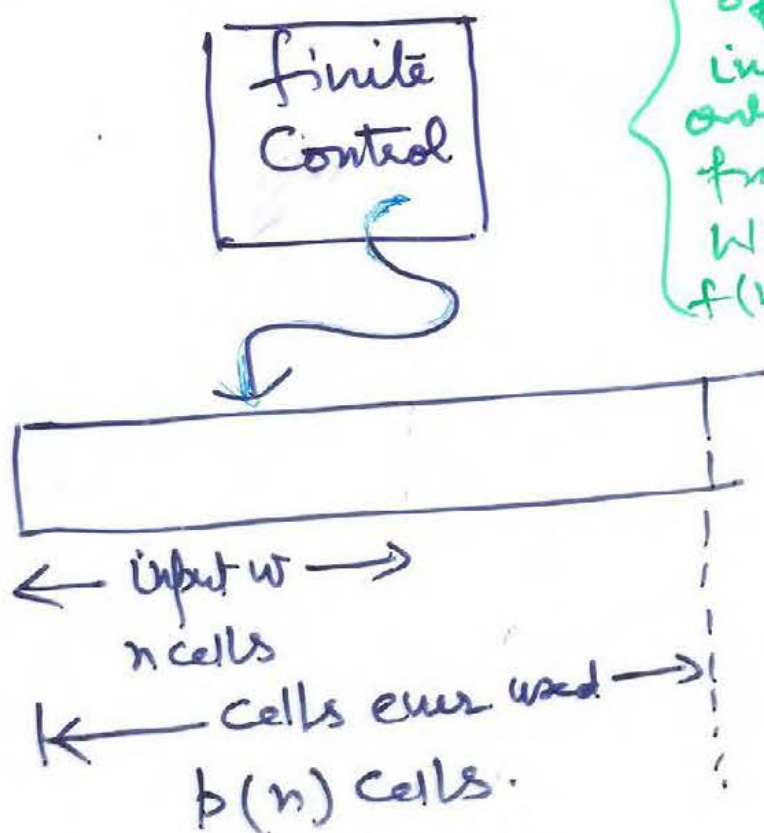 finite
Control
in
f(
input w
n cells
Cells ever used
p(n) cells.